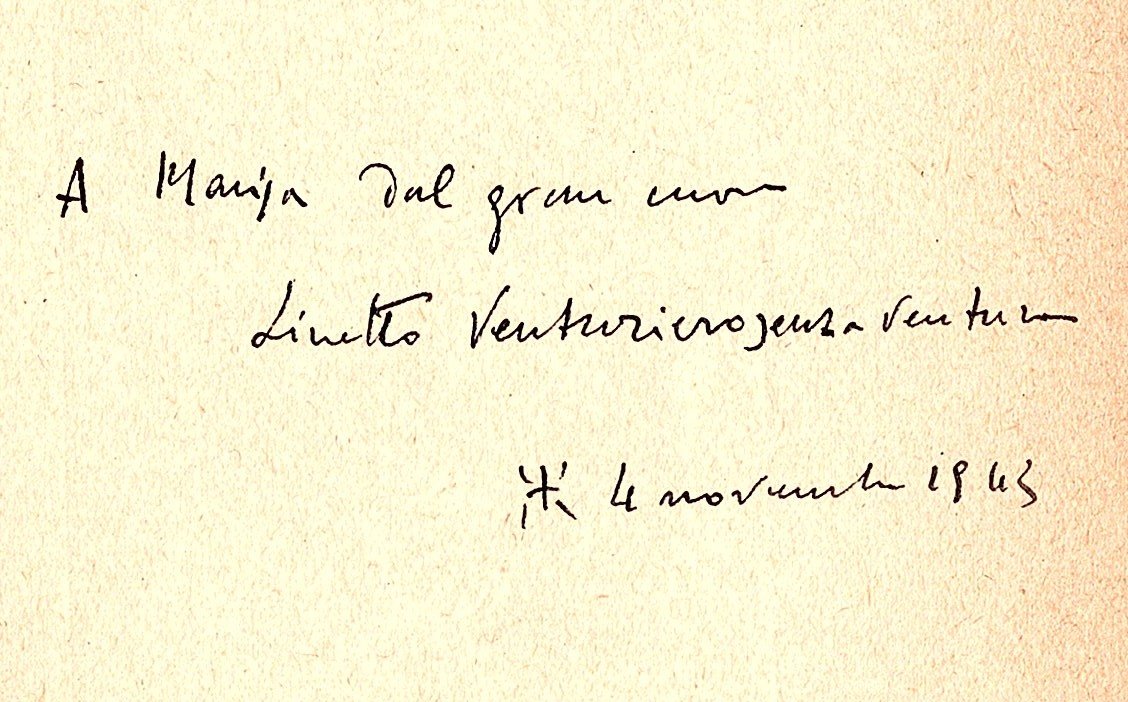 A Marisa dal gran cuore
Linetto Venturiero senza ventura
4 novembre 1943